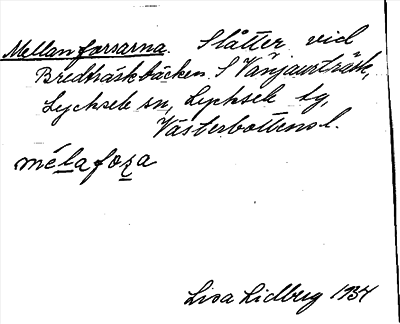 Mellanforsarna. Slåtter vid
Bredträskbäcken, S Vänjaurträsk,
Lycksele sn, Lycksele tg,
Västerbottens l.
mélafoza
Lisa Lidberg 1934